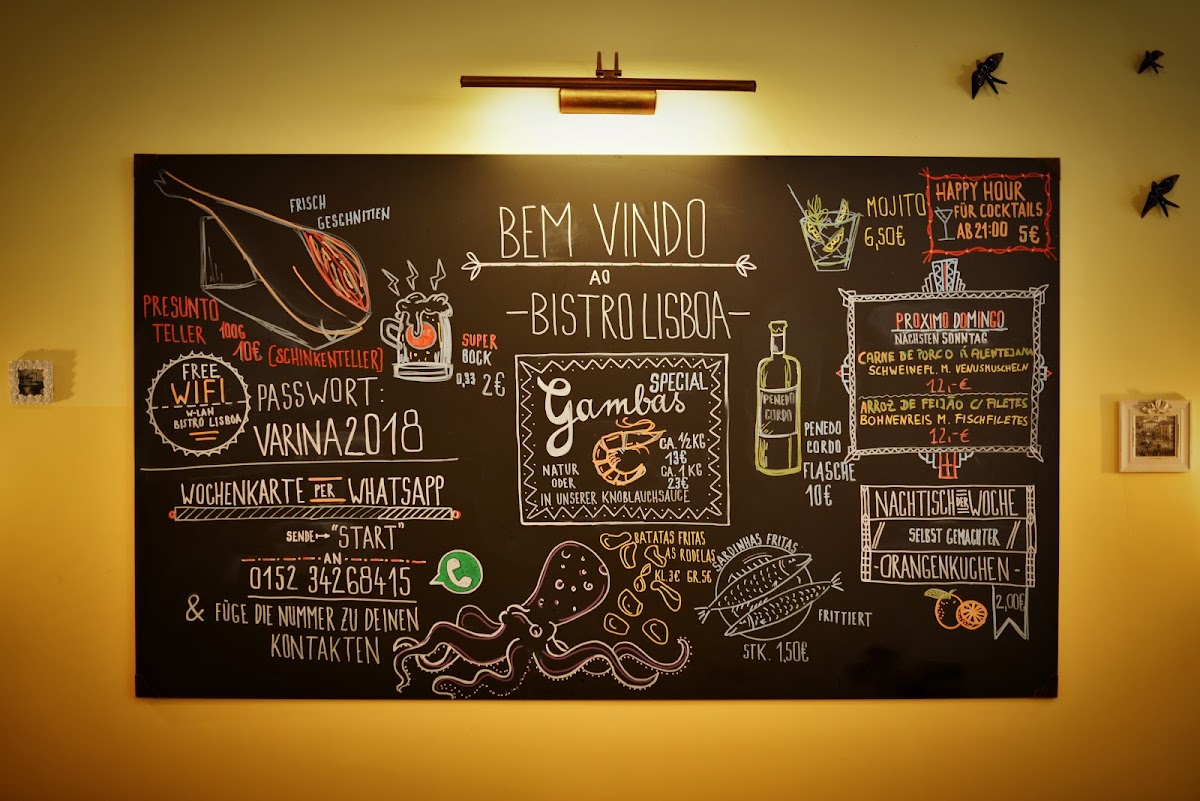 BEM VINDO
AO
-BISTRO LISBOA-
FRISCH
GESCHNITTEN
PRESUNTO
TELLER 100G
10€ (SCHINKENTELLER)
SUPER
BOCK
0,33 2€
FREE
WIFI
W-LAN
BISTRO LISBOA
PASSWORT:
VARINA2018
WOCHENKARTE PER WHATSAPP
SENDE → "START"
AN
0152 34268415
& FÜGE DIE NUMMER ZU DEINEN
KONTAKTEN
SPECIAL
Gambas
CA. 1/2 KG
13€
CA. 1 KG
23€
NATUR
ODER
IN UNSERER KNOBLAUCHSAUCE
BATATAS FRITAS
ÀS RODELAS
KL.3€ GR.5€
SARDINHAS FRITAS
FRITTIERT
STK. 1,50€
PENEDO
CORDO
PENEDO
CORDO
FLASCHE
10€
MOJITO
6,50€
HAPPY HOUR
FÜR COCKTAILS
AB 21:00 5€
PROXIMO DOMINGO
NÄCHSTEN SONNTAG
CARNE DE PORCO Á ALENTEJANA
SCHWEINEFL. M. VENUSMUSCHELN
12,-€
ARROZ DE FEIJÃO C/ FILETES
BOHNENREIS M. FISCHFILETES
12,-€
NACHTISCH DER WOCHE
SELBST GEMACHTER
-ORANGENKUCHEN-
2,00€